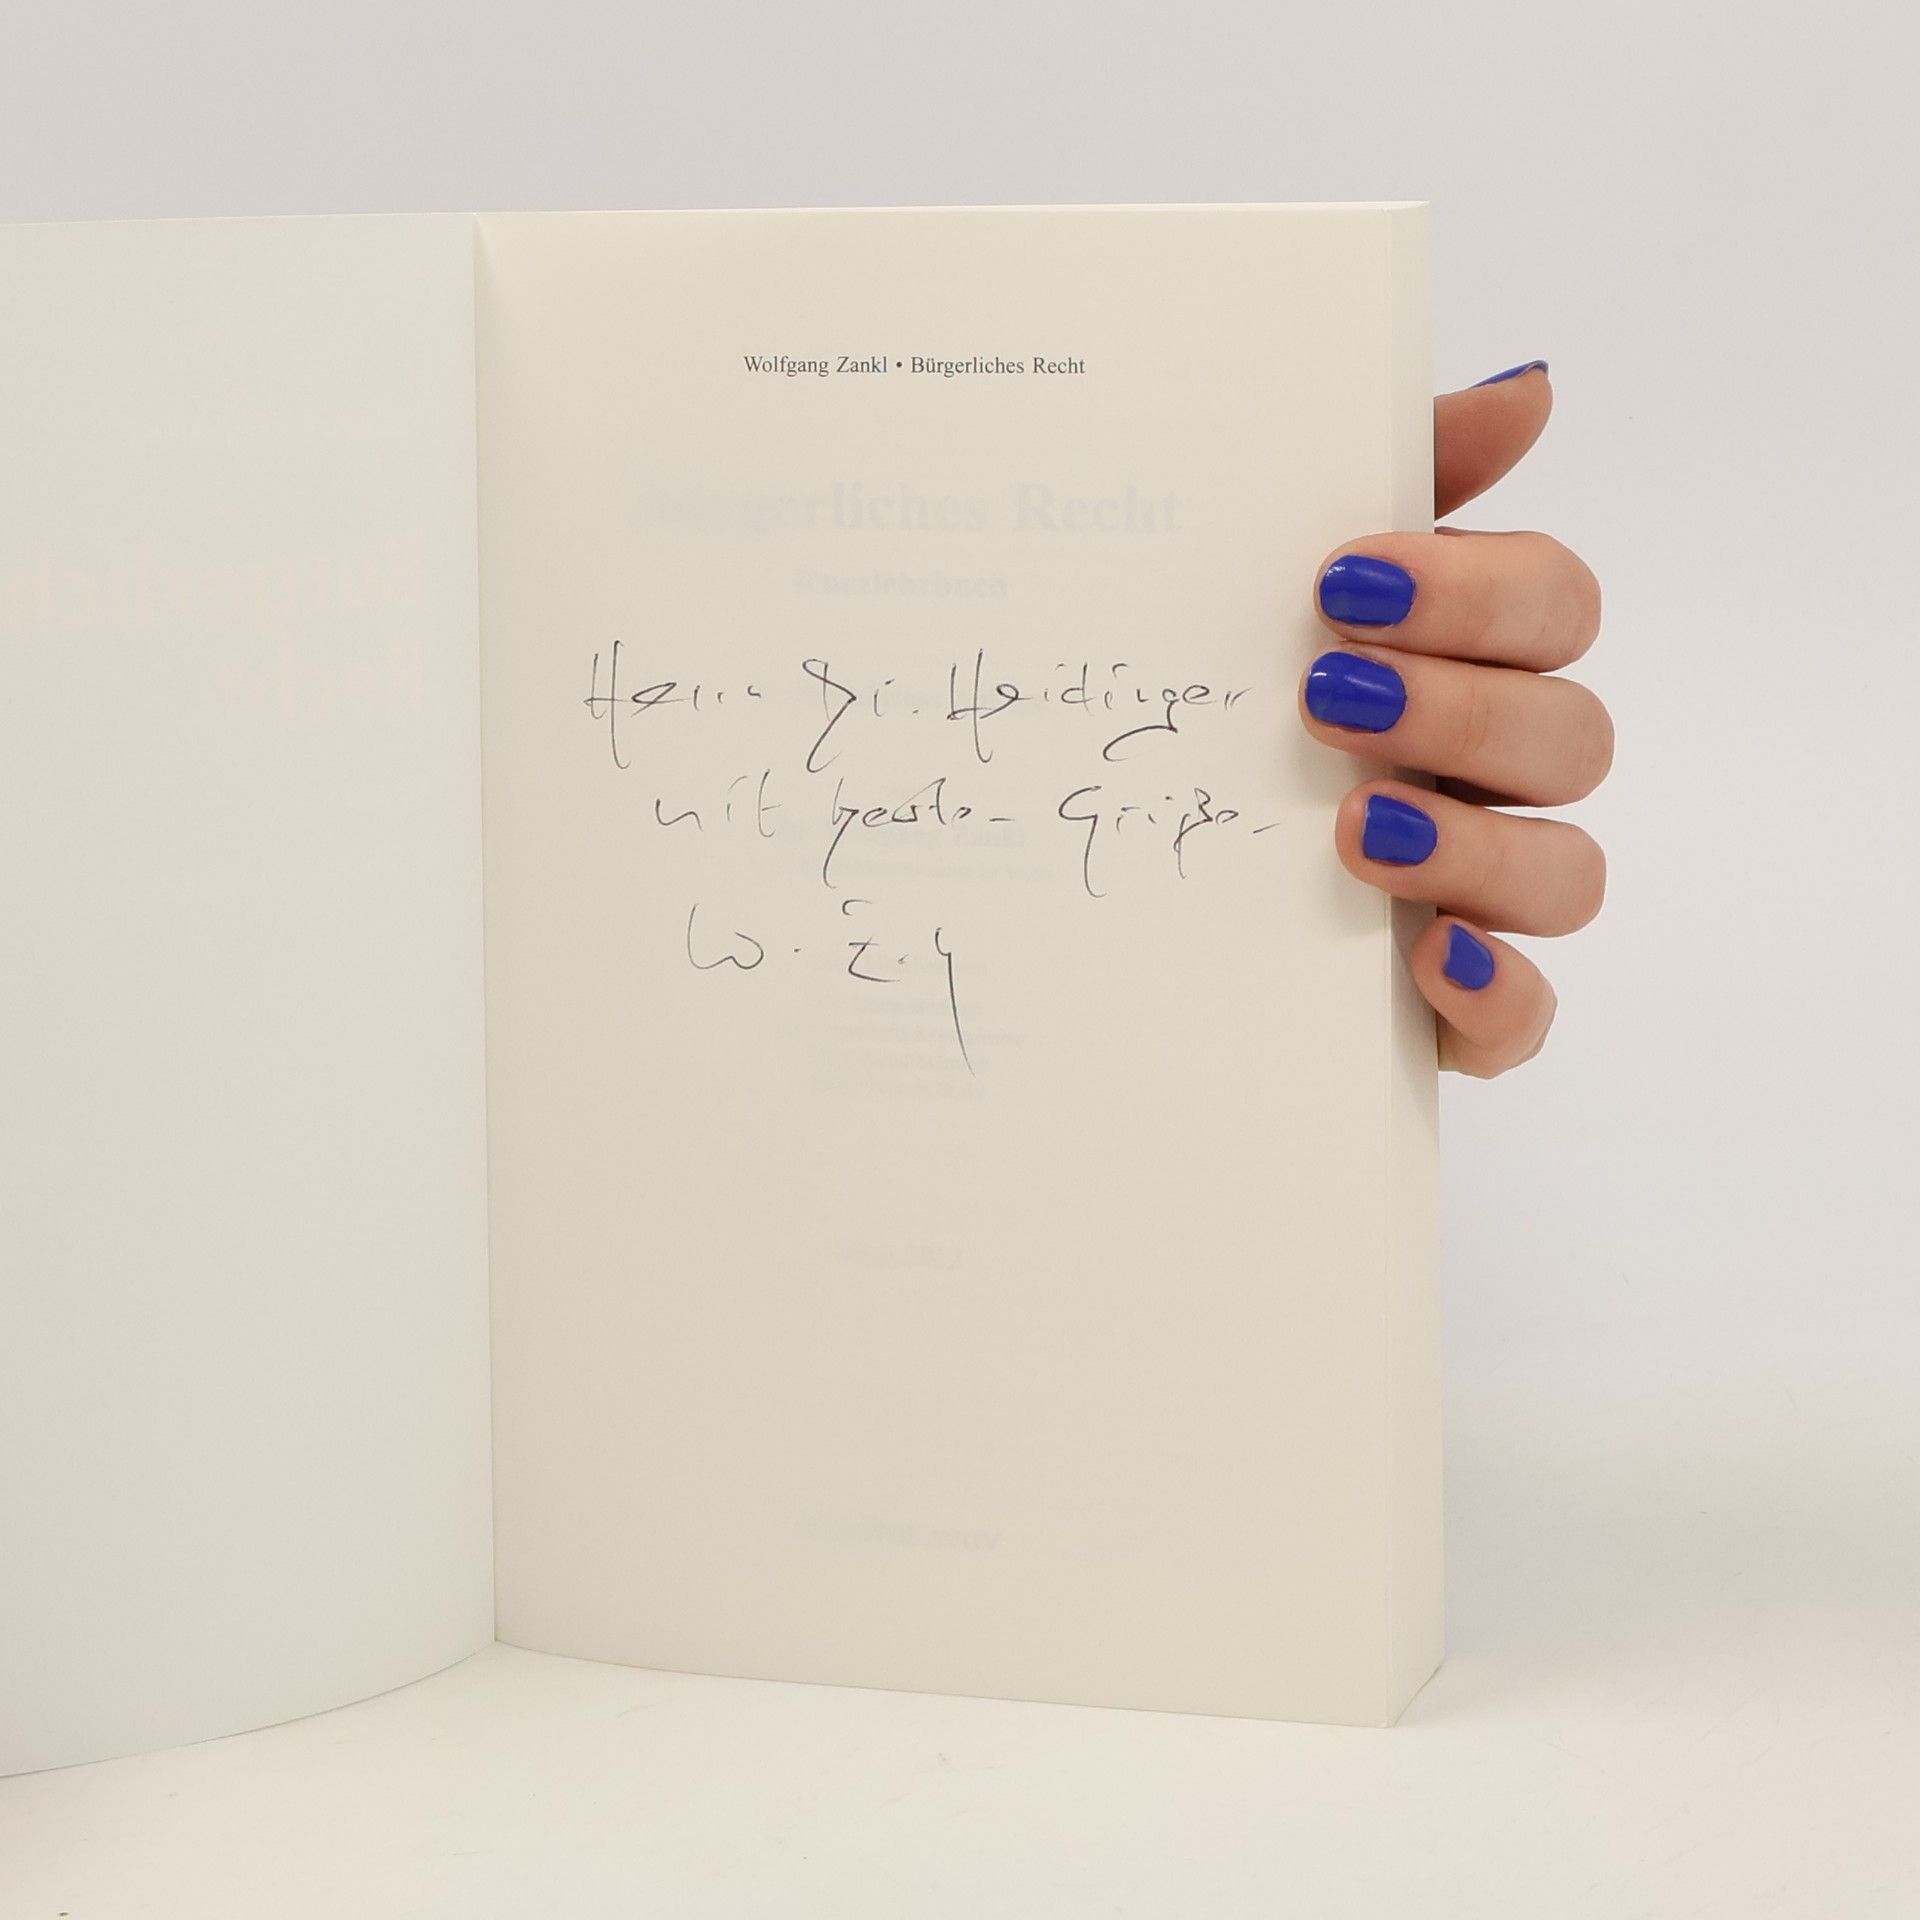 Wolfgang Zankl • Bürgerliches Recht
Bürgerliches Recht
Kurzlehrbuch
Herrn Dr. Heidinger
mit besten Grüßen
W. Z